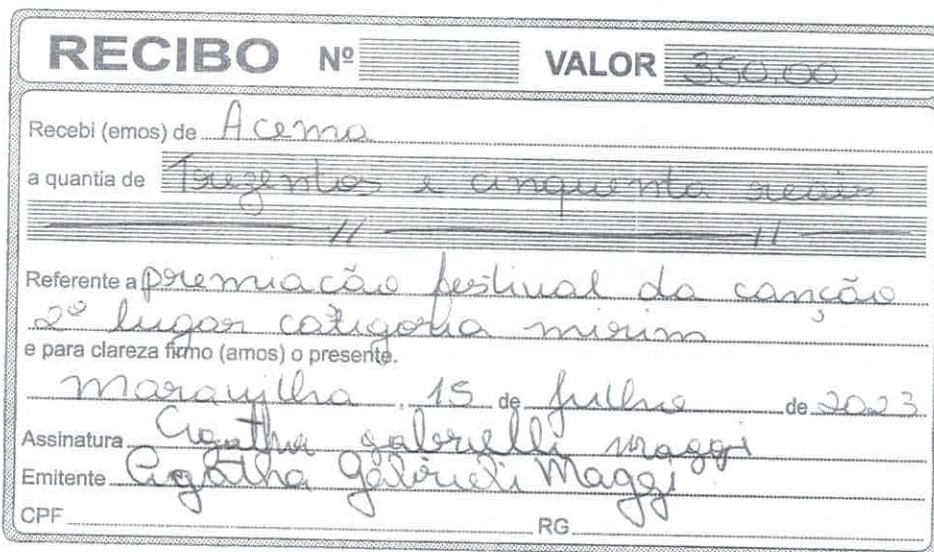 RECIBO Nº VALOR 350,00
Recebi (emos) de Acema
a quantia de Trezentos e cinquenta reais
// //
Referente a premiação festival da canção
2º lugar categoria mirim
e para clareza firmo (amos) o presente.
Maravilha, 15 de julho de 2023
Assinatura Agatha gabrielli maggi
Emitente Agatha Gabrieli Maggi
CPF RG